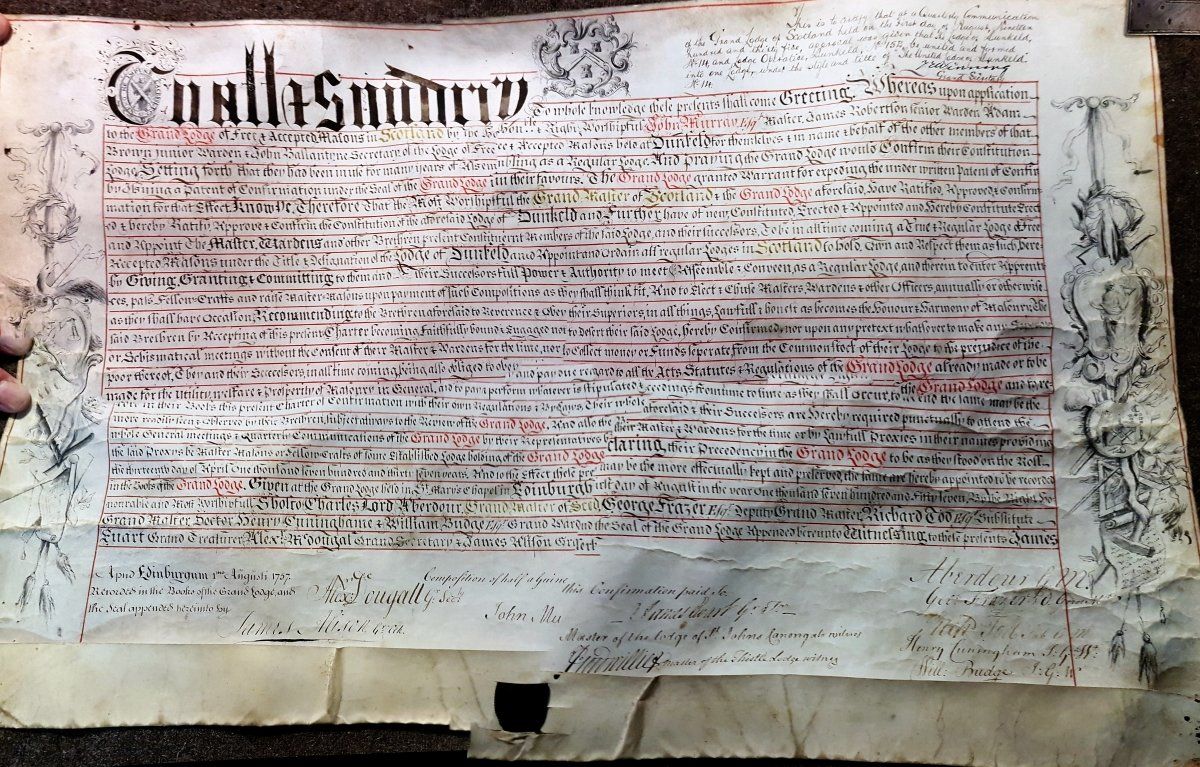 This is to certify that at a Quarterly Communication
of the Grand Lodge of Scotland held on the first day of August Nineteen
Hundred and Thirty five, approval was given that the Lodges Dunkeld,
No. 14, and Lodge Operative, Dunkeld, be united and formed
into one Lodge under the style and title of The United Lodge of Dunkeld
No. 14.
Grand Secretary
To all & Sundry
To whose knowledge these presents shall come Greeting, Whereas upon application
to the Grand Lodge of Free & Accepted Masons in Scotland by the Right Worshipful John Murray Esqr. Master, James Robertson Senior Warden Adam
Brown Junior Warden & John Ballantyne Secretary of the Lodge of Free & Accepted Masons held at Dunkeld for themselves & in name & behalf of the other members of that
Lodge, Setting forth that they had been in use for many years of Assembling as a Regular Lodge, And praying the Grand Lodge would Confirm their Constitution
by Signing a Patent of Confirmation under the Seal of the Grand Lodge in their favours. The Grand Lodge granted Warrant for expeding the under written Patent of Confir
mation for that Effect, Know Ye Therefore That the Most Worshipful the Grand Master of Scotland & the Grand Lodge aforesaid, Have Ratified, Approved & Confirm
ed & hereby Ratify Approve & Confirm the Constitution of the aforesaid Lodge of Dunkeld and Further have of new Constituted, Erected & Appointed and Hereby Constitute Erect
and Appoint The Master, Wardens and other Brethren present Constituent Members of the said Lodge, and their successors, To be in all time coming a True & Regular Lodge of Free
Accepted Masons under the Title & Designation of the Lodge of Dunkeld and Appoint and Ordain all regular Lodges in Scotland to hold, Own and Respect them as such, Here
by Giving, Granting & Committing to them and their Successors Full Power & Authority to meet, Assemble & Conveen, as a Regular Lodge, and therein to enter Apprenti
ces, pass Fellow Crafts and raise Master Masons upon payment of such Compositions as they shall think fit, And to Elect & Chuse Masters, Wardens & other Officers, annually or otherwise
as they shall have Occasion, Recommending to the Brethren aforesaid to Reverence & Obey their Superiors, in all things, Lawfull & honest as becomes the Honour & Harmony of Masonry, The
said Brethren by Accepting of this present Charter becoming Faithfully bound & Engaged not to desert their said Lodge, hereby Confirmed, nor upon any pretext whatsoever to make any
or Schismatical meetings without the Consent of their Master & Wardens for the time, nor to Collect money or Funds seperate from the Common stock of their Lodge to the prejudice of the
poor thereof, They and their Successors, in all time coming being also obliged to obey and pay due regard to all the Acts Statutes & Regulations of the Grand Lodge already made or to be
made for the Utility, welfare & Prosperity of Masonry in General, and to pay & perform whatever is stipulated
ceedings from time to time as they shall Occur, to the end the same may be the
Grand Lodge and to re
in their Books this present Charter of Confirmation with their own Regulations & By Laws, Their whole
more readily seen & observed by their Brethren, Subject always to the Review of the Grand Lodge, And also the
aforesaid & their Successors are Hereby required punctually to attend the
whole General meetings & Quarterly Communications of the Grand Lodge by their Representatives
their Master & Wardens for the time or by Lawfull Proxies in their names providing
the said Proxys be Master Masons or Fellow Crafts of some Established Lodge holding of the Grand Lodge
claring their Precedency in the Grand Lodge to be as they stood on the Roll
the thirteenth day of April One thousand seven hundred and thirty seven years. And to the Effect these pre
may be the more effectually kept and preserved, the same are thereby appointed to be recorded
in the Books of the Grand Lodge. Given at the Grand Lodge held in St. Mary's Chapel in Edinburgh
first day of August in the year One thousand seven hundred and Fifty seven, By the Right Ho
norable and Most Worshipfull Sholto Charles Lord Aberdour, Grand Master of Scotd. George Frazer Esqr. Deputy Grand Master, Richard Tod Esqr. Substitute
Grand Master, Doctor Henry Cuninghame & William Budge Esqr. Grand Ward
nd the Seal of the Grand Lodge Appended hereunto Witnessing to these presents James
Euart Grand Treasurer, Alexr. McDougal Grand Secretary & James Alison Gr.
Apud Edinburgum 1mo August 1757.
Recorded in the Books of the Grand Lodge and
the Seal appended hereinto by
James Alison
Alexr McDougall Gr Secy
Composition of half a Guine
this Confirmation paid to
John Mu
James Ewart
Master of the Lodge of St. Johns Canongate witness
master of the Thistle Lodge witness
Aberdour G.M.
Geo: Frazer
Henry Cuningham S.G.W.
Will: Budge J:G:W